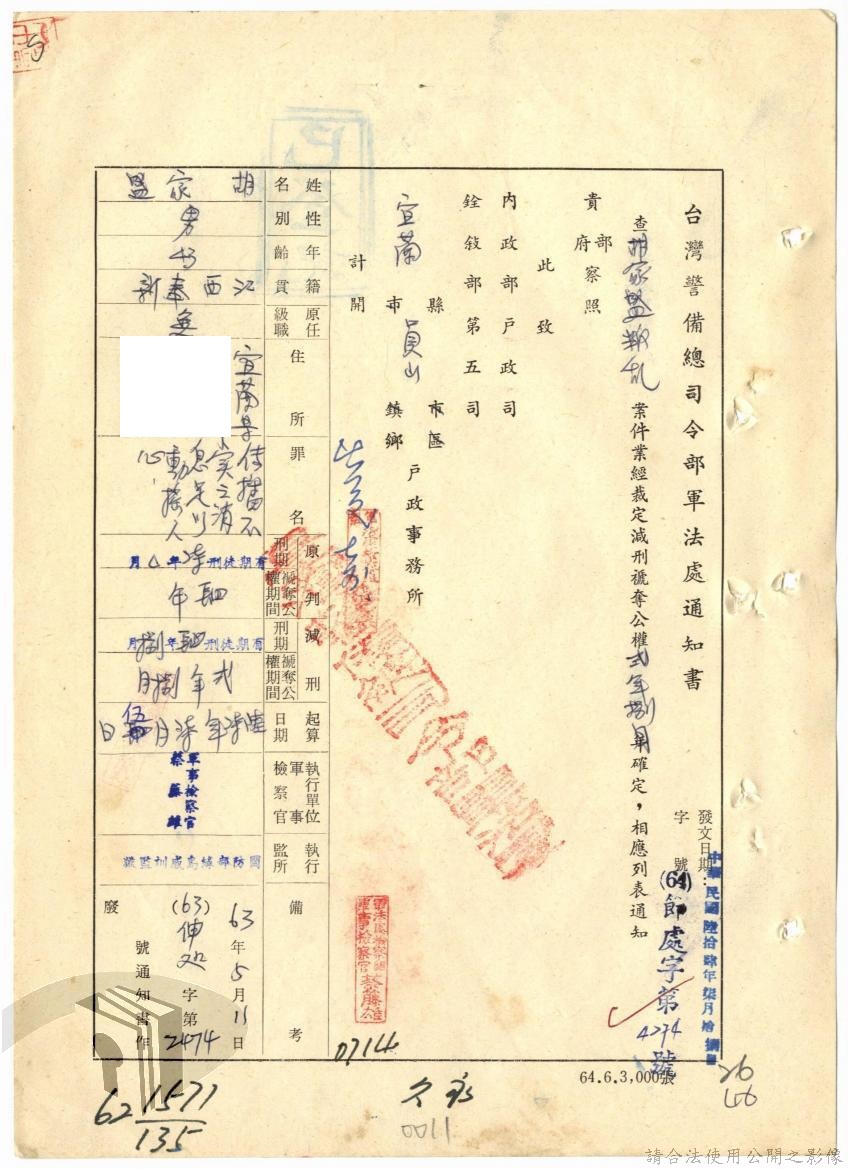 台灣警備總司令部軍法處通知書
發文日期：中華民國陸拾肆年柒月拾捌日
字號 (64)節處字第4274號
查胡家盟叛亂案件業經裁定減刑褫奪公權弍年捌月確定，相應列表通知
貴部府察照
此致
內政部戶政司
銓敍部第五司
宜蘭縣市 員山市區鎮鄉戶政事務所
計開
姓名 胡家盟
性別 男
年齡
籍貫 江西奉新
原任級職 無
住所 宜蘭縣
罪名 傳播不實之消息足以動搖人心
原判
刑期 有期徒刑柒年△月
褫奪公權期間 肆年
減刑
刑期 有期徒刑肆年捌月
褫奪公權期間 弍年捌月
起算日期 陸柒年柒月伍日
執行單位軍事檢察官 軍事檢察官蔡藤雄
執行監所 國防部綠島感訓監獄
備考 63年5月11日
(63)伸処字第2474號通知書作廢
軍法處檢察官
軍事檢察官蔡藤雄
0714
64.6.3,000張
26
46
62 1571
135
0011
請合法使用公開之影像